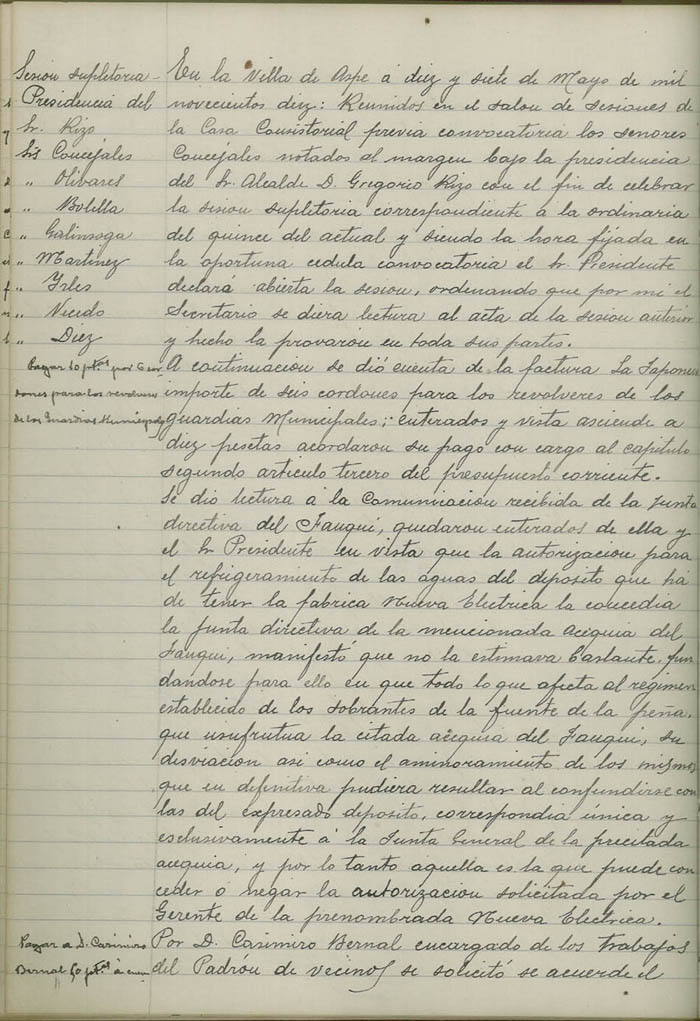 Sesion supletoria
Presidencia del
Sr. Rizo
Srs Concejales
" Olivares
" Botella
" Galinsoga
" Martínez
" Irles
" Vicedo
" Diez
En la Villa de Aspe á diez y siete de Mayo de mil
novecientos diez: Reunidos en el salon de sesiones de
la Casa Consistorial previa convocatoria los señores
Concejales notados al margen bajo la presidencia
del Sr. Alcalde D. Gregorio Rizo con el fin de celebrar
la sesion supletoria correspondiente á la ordinaria
del quince del actual y siendo la hora fijada en
la oportuna cedula convocatoria el Sr. Presidente
declará abierta la sesion, ordenando que por mi el
Secretario se diera lectura al acta de la sesion anterior
y hecho la provaron en toda sus partes.
Pagar 10 ptas por 6 cor
dones para los revolveres
de los Guardias Municipales
A continuacion se dió cuenta de la factura La Japonesa
importe de seis cordones para los revolveres de los
guardias Municipales; enterados y vista asciende a
diez pesetas acordaron su pago con cargo al capitulo
segundo articulo tercero del presupuesto corriente.
Se dió lectura á la Comunicacion recibida de la Junta
directiva del Fauqui, quedaron enterados de ella y
el Sr Presidente en vista que la autorizacion para
el refrigeramiento de las aguas del deposito que há
de tener la fabrica Nueva Electrica la concedia
la Junta directiva de la mencionada Acequia del
Fauqui, manifestó que no la estimava bastante, fun
dandose para ello en que todo lo que afecta al régimen
establecido de los sobrantes de la fuente de la peña,
que usufrutua la citada acequia del Fauqui, su
disviacion asi como el aminoramiento de los mismos
que en definitiva pudiera resultar al confundirse con
las del expresado deposito, correspondia única y
esclusivamente á la Junta General de la precitada
acequia, y por lo tanto aquella es la que puede con
ceder ó negar la autorizacion solicitada por el
Gerente de la prenombrada Nueva Electrica.
Pagar a D. Casimiro
Bernal 50 ptas á cuen
Por D. Casimiro Bernal encargado de los trabajos
del Padrón de vecinos se solicitó se acuerde el